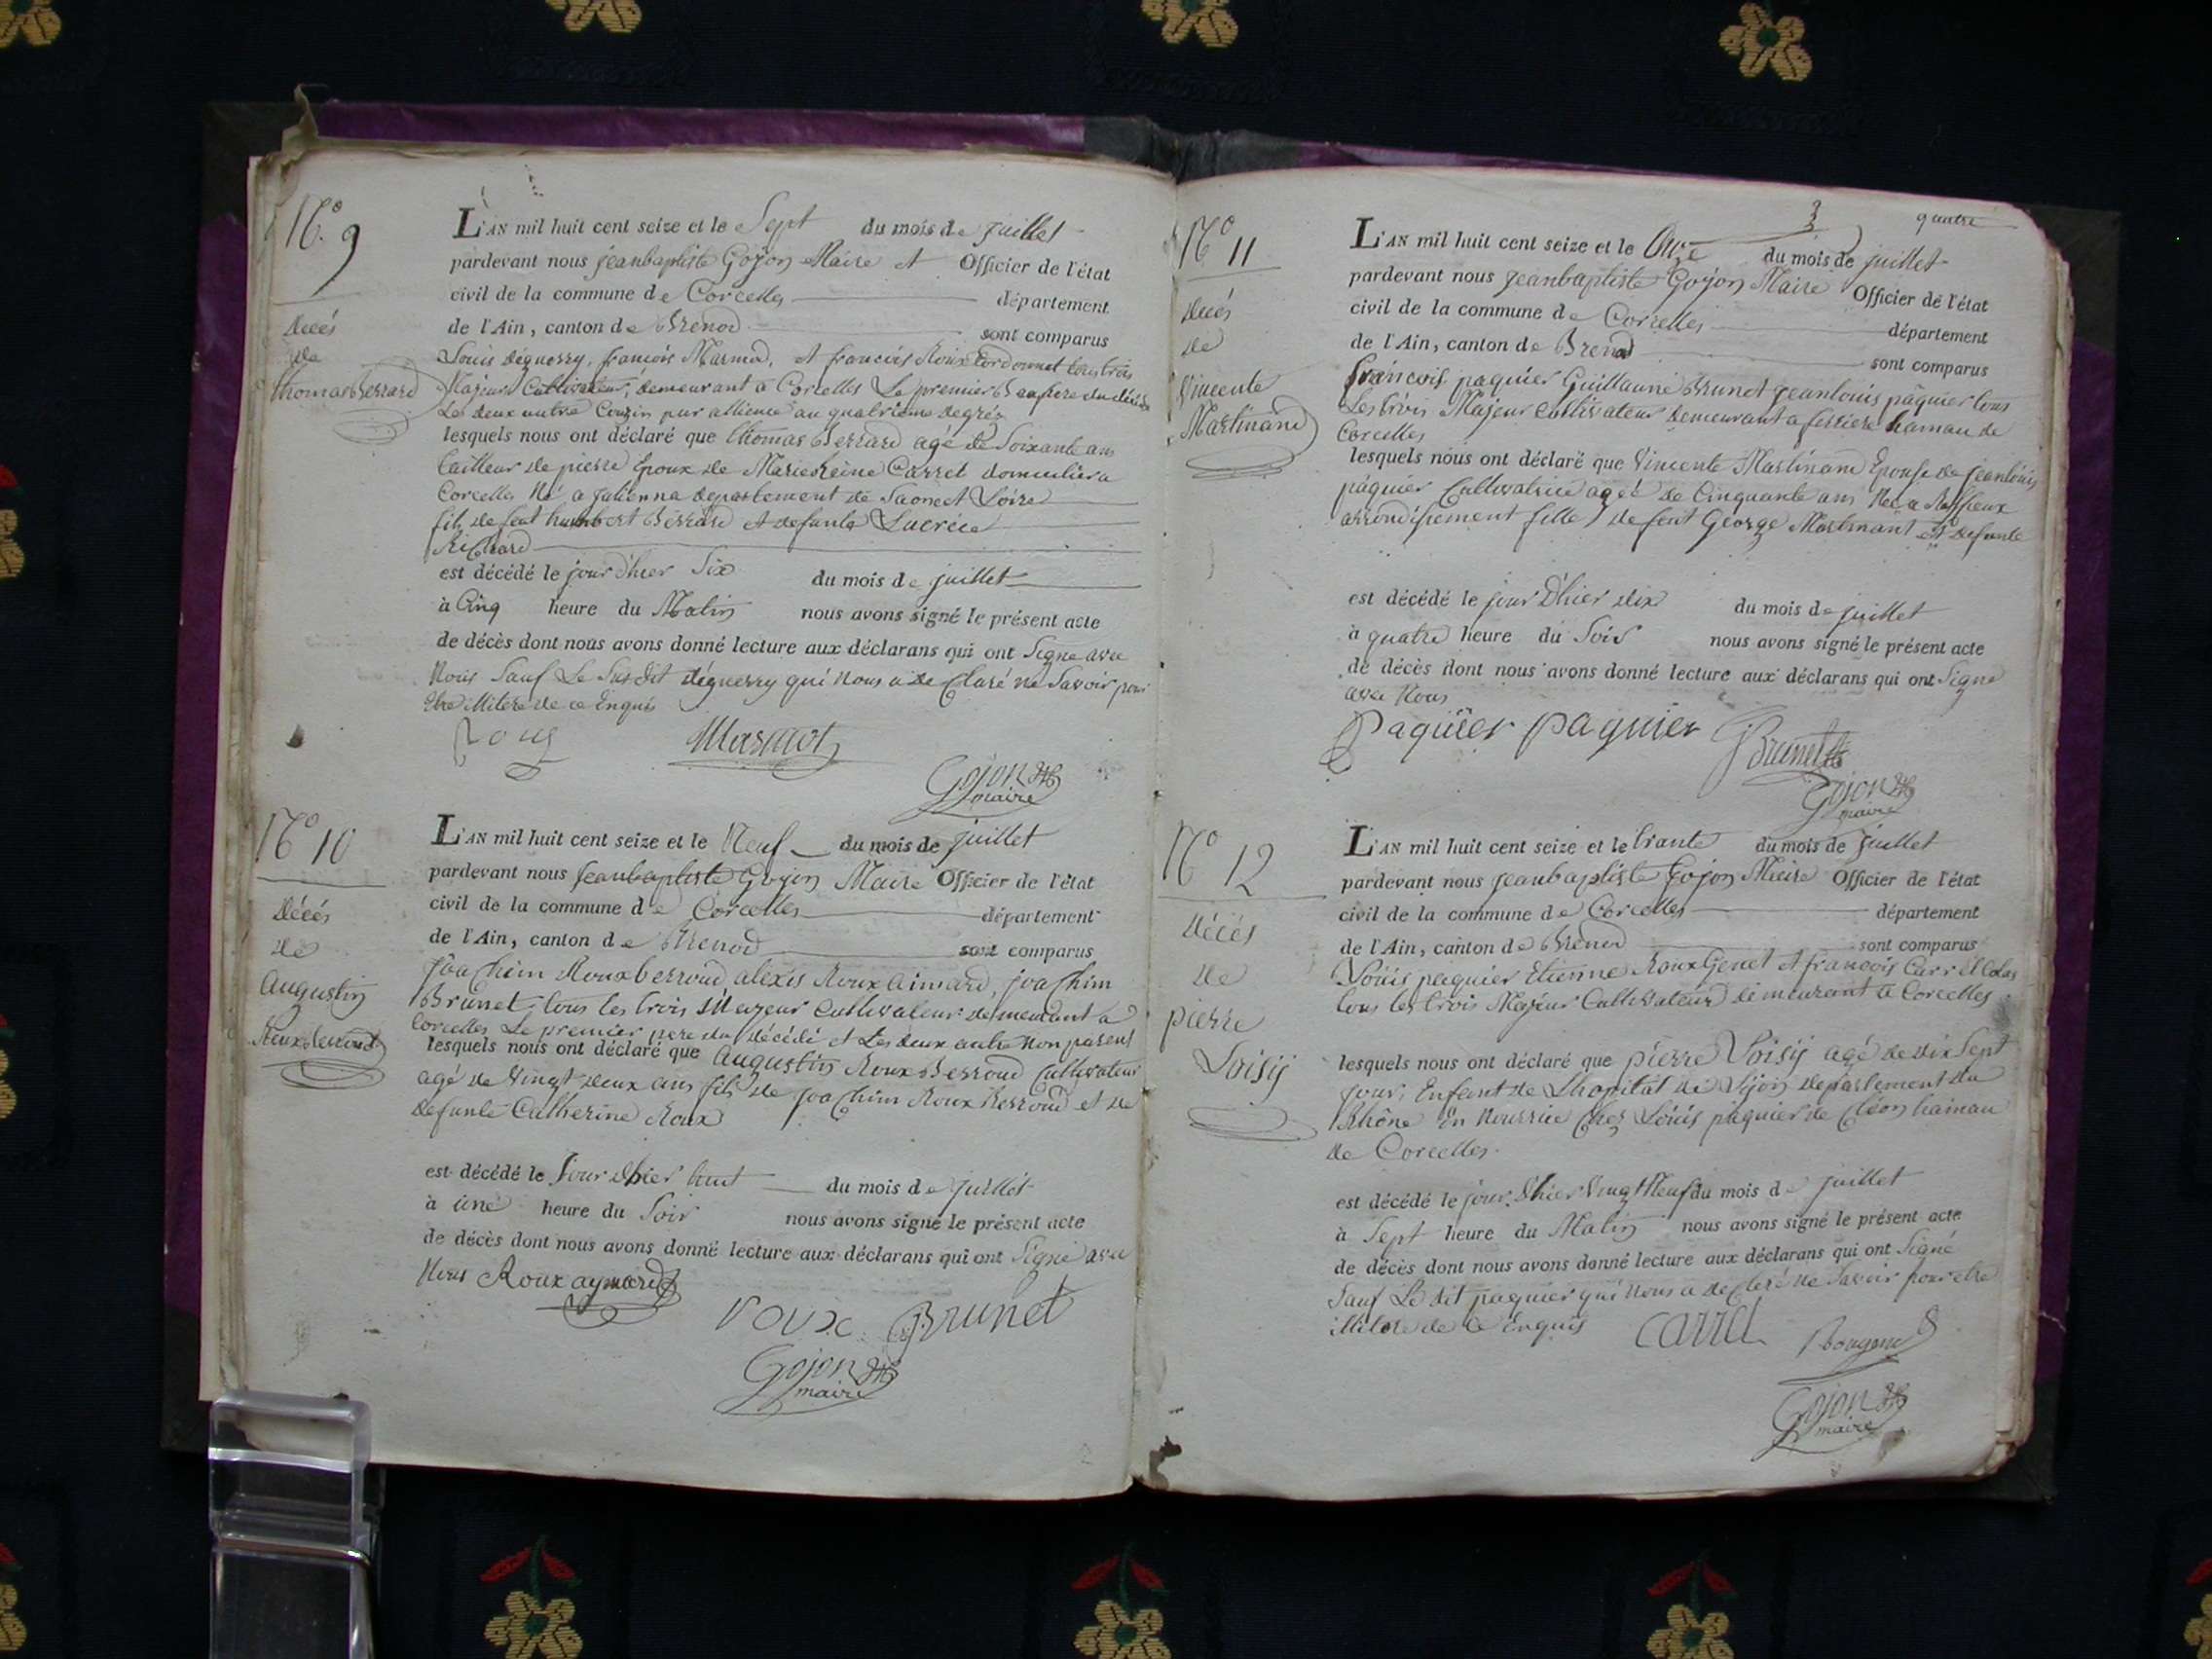 N.° 9
L'AN mil huit cent seize et le Sept du mois de juillet
pardevant nous jeanbaptiste Gojon Maire et Officier de l'état
civil de la commune de Corcelles département
de l'Ain, canton de Brenod sont comparus
Louis déguerry, francois Marmod, et francois Roux Cordonnet tous trois
Majeur Cultivateur, demeurant a Corcelles Le premier Beaufrere du décédé
Les deux autre Cousin par allience au quatrieme degrés
lesquels nous ont déclaré que thomas Berrard agé de Soixante ans
tailleur de pierre Epoux de Marie Reine Carret domicilier a
Corcelles Né a julienna departement de Saone et Loire
fils de feut humbert Berrard et defunte Lucrece
Richard
est décédé le jour d'hier Six du mois de juillet
à Cinq heure du Matin nous avons signé le présent acte
de décès dont nous avons donné lecture aux déclarans qui ont Signe avec
Nous Sauf Le Susdit déguerry qui Nous a declaré ne Savoir pour
Etre illiteré de ce Enquis
Décés
de
thomas Berrard
Roux Marmot
Gojon
maire
N° 10
L'AN mil huit cent seize et le Neuf du mois de juillet
pardevant nous Jeanbaptiste Gojon Maire Officier de l'état
civil de la commune de Corcelles département
de l'Ain, canton de Brenod sont comparus
joachim Roux berroud, alexis Roux aimard, joachim
Brunet tous les trois Majeur Cultivateur demeurant a
Corcelles Le premier pere du décédé et Les deux autre Non parent
lesquels nous ont déclaré que Augustin Roux Berroud Cultivateur
agé de Vingt deux ans fils de joachim Roux Berroud et de
defunte Catherine Roux
est décédé le Jour d'hier huit du mois de juillet
à une heure du Soir nous avons signé le présent acte
de décès dont nous avons donné lecture aux déclarans qui ont Signé avec
Nous Roux aymard
Décés
de
Augustin
Roux Berroud
roux Brunet
Gojon
maire
quatre
N° 11
L'AN mil huit cent seize et le Onze du mois de juillet
pardevant nous jeanbaptiste Gojon Maire Officier de l'état
civil de la commune de Corcelles département
de l'Ain, canton de Brenod sont comparus
francois paquier Guillaume Brunet jeanlouis paquier tous
Les trois Majeur Cultivateur demeurant a ferriere hamau de
Corcelles
lesquels nous ont déclaré que Vincente Martinand Epouse de jeanlouis
paquier Cultivatrice agée de Cinquante ans Née a Ruffieux
arrondissement fille de feut George Martinant et defunte
est décédé le jour D'hier dix du mois de juillet
à quatre heure du Soir nous avons signé le présent acte
de décès dont nous avons donné lecture aux déclarans qui ont Signe
avec Nous
Décés
de
Vincente
Martinand
Paquier paquier Brunet
Gojon
maire
N° 12
L'AN mil huit cent seize et le trante du mois de juillet
pardevant nous jeanbaptiste Gojon Maire Officier de l'état
civil de la commune de Corcelles département
de l'Ain, canton de Brenod sont comparus
Louis paquier Etienne Roux Genet et francois Carrel Colas
tous les trois Majeur Cultivateur demeurant a Corcelles
lesquels nous ont déclaré que pierre Loisij agé de dix Sept
jour, Enfent de Lhopital de Lijon departement du
Rhône En Nourrice Chez Louis paquier de Cléon hamau
de Corcelles
est décédé le jour d'hier Vingt Neuf du mois de juillet
à Sept heure du Matin nous avons signé le présent acte
de décès dont nous avons donné lecture aux déclarans qui ont Signé
Sauf Le dit paquier qui Nous a declaré ne Savoir pour etre
illiteré de ce Enquis
Décés
de
pierre
Loisij
carrel
Gojon
maire